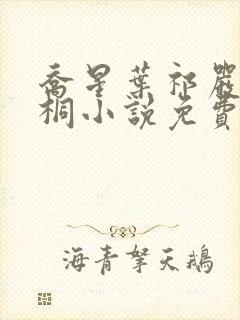 喬星葉祁嚴
桐小說免費
海青拏天鵝